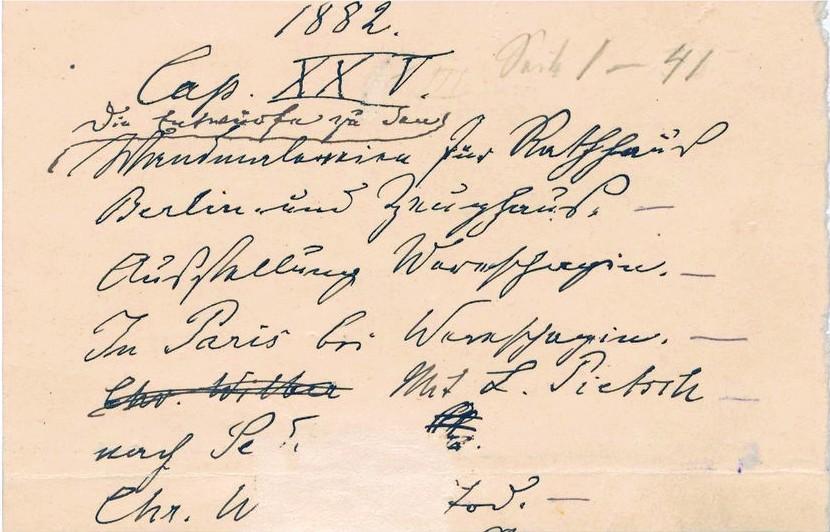 1882.
Cap. XXV. Seite 1 – 41
Die Entwürfe zu den
Wandmalereien für Rathhaus
Berlin und Zeughaus. –
Ausstellung Wereschagin. –
In Paris bei Wereschagin. –
Chr. Wilber Mit L. Pietsch –
nach Pe
Chr. W Tod. –